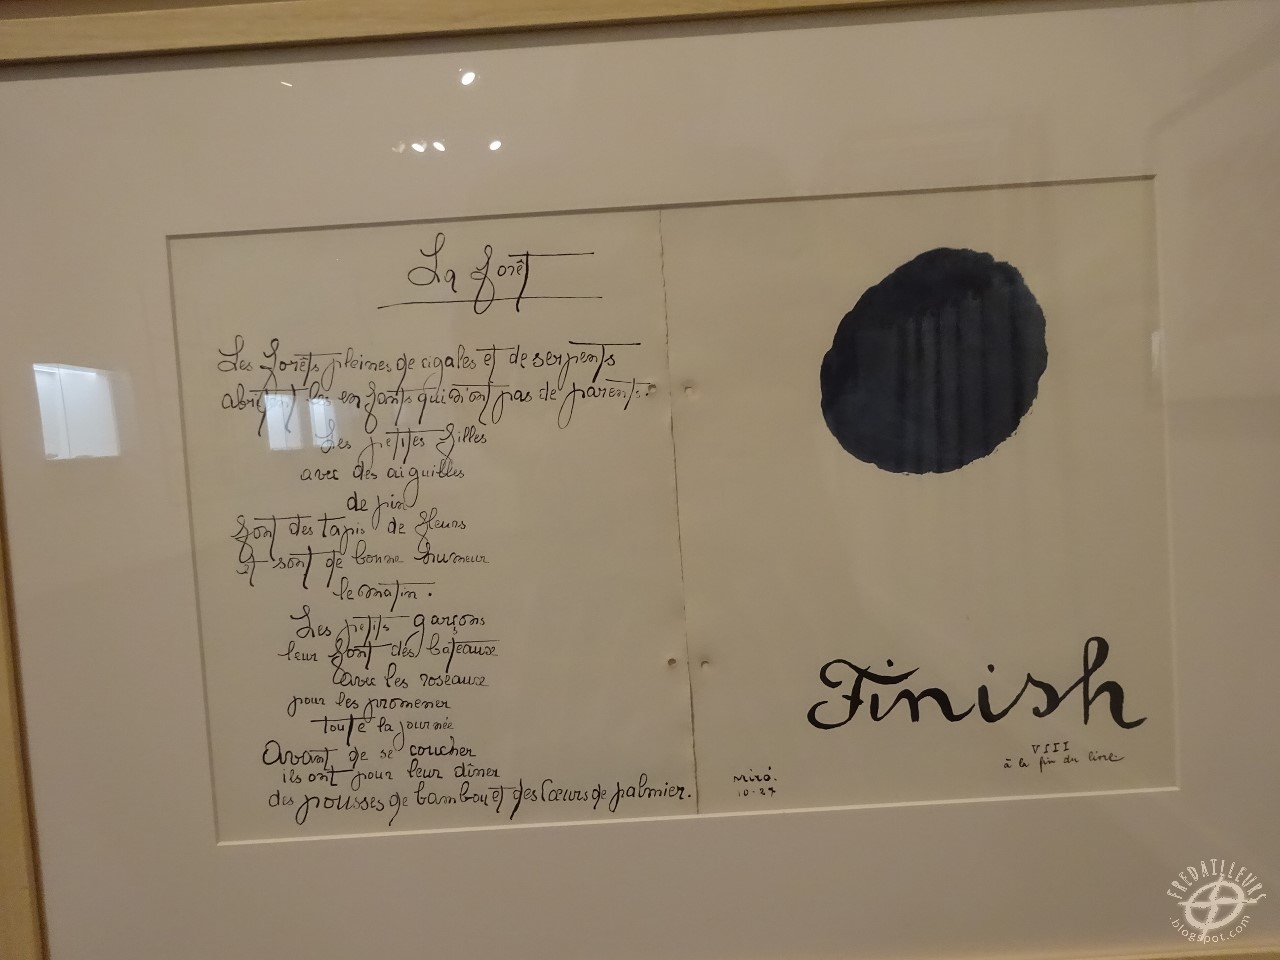 La forêt
Les forêts pleines de cigales et de serpents
abritent les enfants qui n'ont pas de parents.
Les petites filles
avec des aiguilles
de pin
font des tapis de fleurs
et sont de bonne humeur
le matin.
Les petits garçons
leur font des bateaux
avec les roseaux
pour les promener
toute la journée
Avant de se coucher
ils ont pour leur dîner
des pousses de bambou et des cœurs de palmier.
Finish
VIII
à la fin du livre
Miró.
10-27
FREDAILLEURS
.blogspot.com